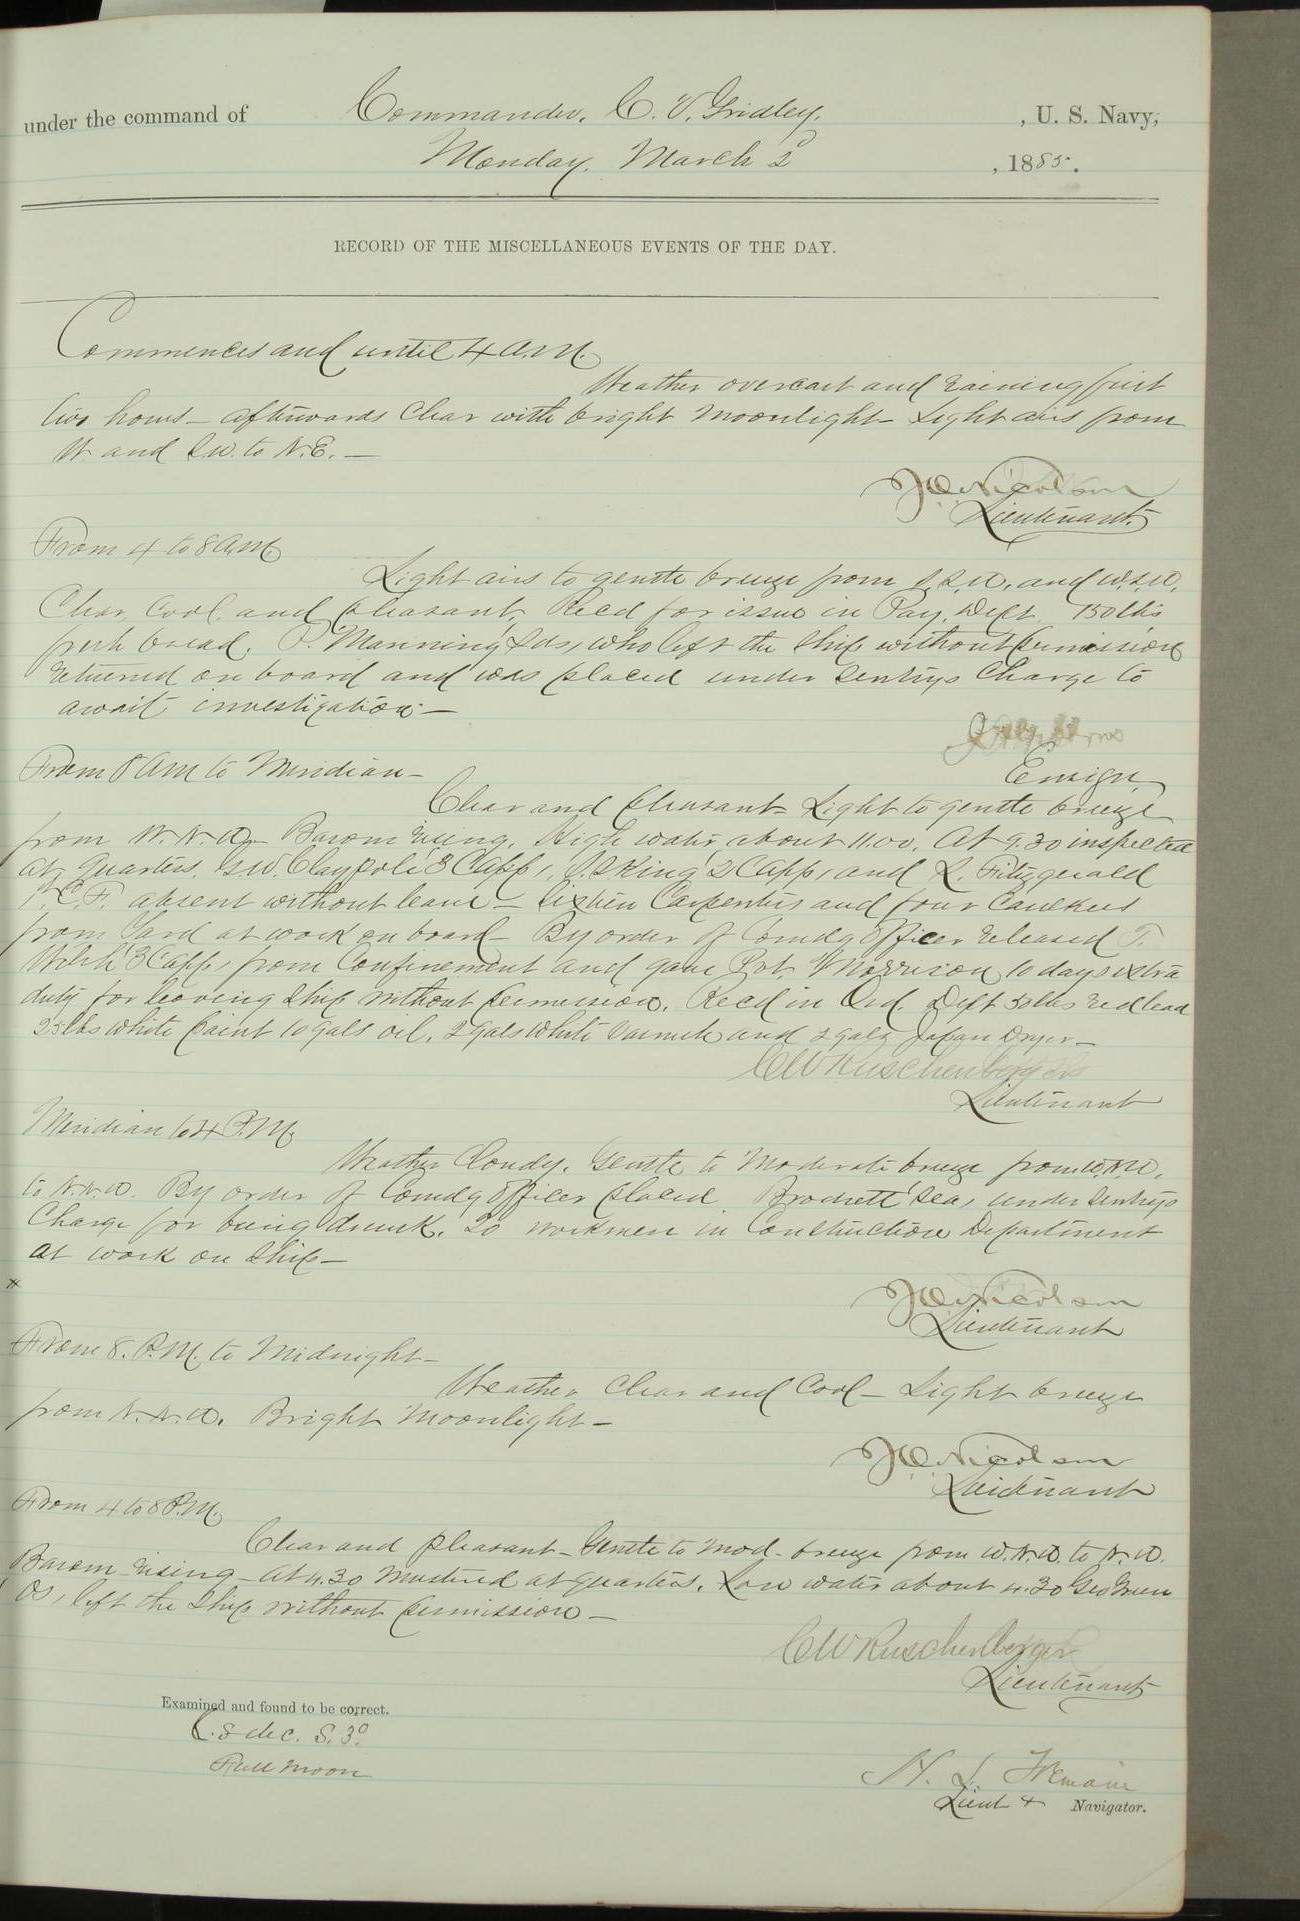 under the command of Commander, C. V. Gridley, , U. S. Navy,
Monday, March 2d , 1885.
RECORD OF THE MISCELLANEOUS EVENTS OF THE DAY.
Commences and until 4 A.M.
Weather overcast and raining first
two hours - afterwards Clear with bright moonlight - Light airs from
W. and S.W. to N.E. -
Lieutenant.
From 4 to 8 A.M.
Light airs to gentle breeze from S.S.W. and W.S.W.
Clear, Cool and pleasant. Recd for issue in Pay. Dept 150 lbs
fresh bread. P. Manning, Lds, who left the Ship without permission
returned on board and was placed under sentrys Charge to
await investigation. -
Ensign
From 8 AM to Meridian -
Clear and pleasant - Light to gentle breeze
from W.N.W. - Barom rising. High water about 11.00. At 9.30 inspected
at quarters. G.W. Claypole 3 C app, S. King 2 C app, and L. Fitzgerald
1" C.F. absent without leave - Sixteen Carpenters and four Caulkers
from Yard at work on board - By order of Comdg Officer released T.
Welsh 3 C app, from Confinement and gave Pvt. Morrison 10 days extra
duty for leaving Ship without permission. Recd in Ord. Dept 50 lbs red lead
25 lbs white paint 10 galls oil, 2 gals white varnish and 2 galls Japan Dryer -
C W Ruschenberger
Lieutenant
Meridian to 4 P.M.
Weather Cloudy. Gentle to Moderate breeze from W.N.W.
to N.N.W. By order of Comdg Officer placed Sea, under Sentrys
Charge for being drunk. 20 workmen in Construction Department
at work on Ship -
*
Lieutenant
From 8. P.M. to Midnight -
Weather Clear and Cool - Light breeze
from N.N.W. Bright Moonlight -
Lieutenant
From 4 to 8 P.M.
Clear and pleasant - Gentle to mod - breeze from W.N.W. to N.W.
Barom - rising - At 4.30 Mustered at quarters. Low water about 4.30 Geo Green
OS, left the Ship without permission -
C W Ruschenberger
Lieutenant
Examined and found to be correct.
C.'s dec. S. 3°
Full moon
Lieut & Navigator.